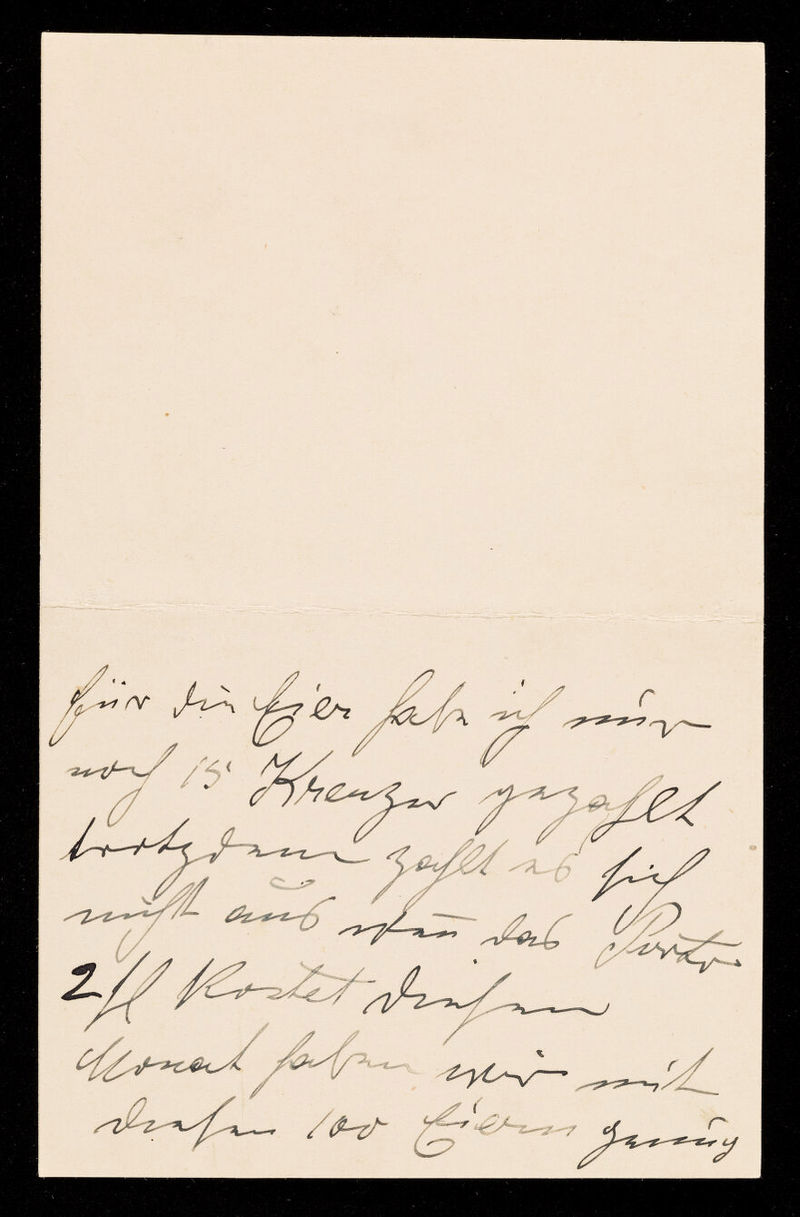 für die Eier habe ich nur
noch 15 Kreuzer gezahlt
trotzdem zahlt es sich
nicht aus wen̄ das Porto
2 fl kostet diesen
Monat haben wir mit
diesen 100 Eiern genug